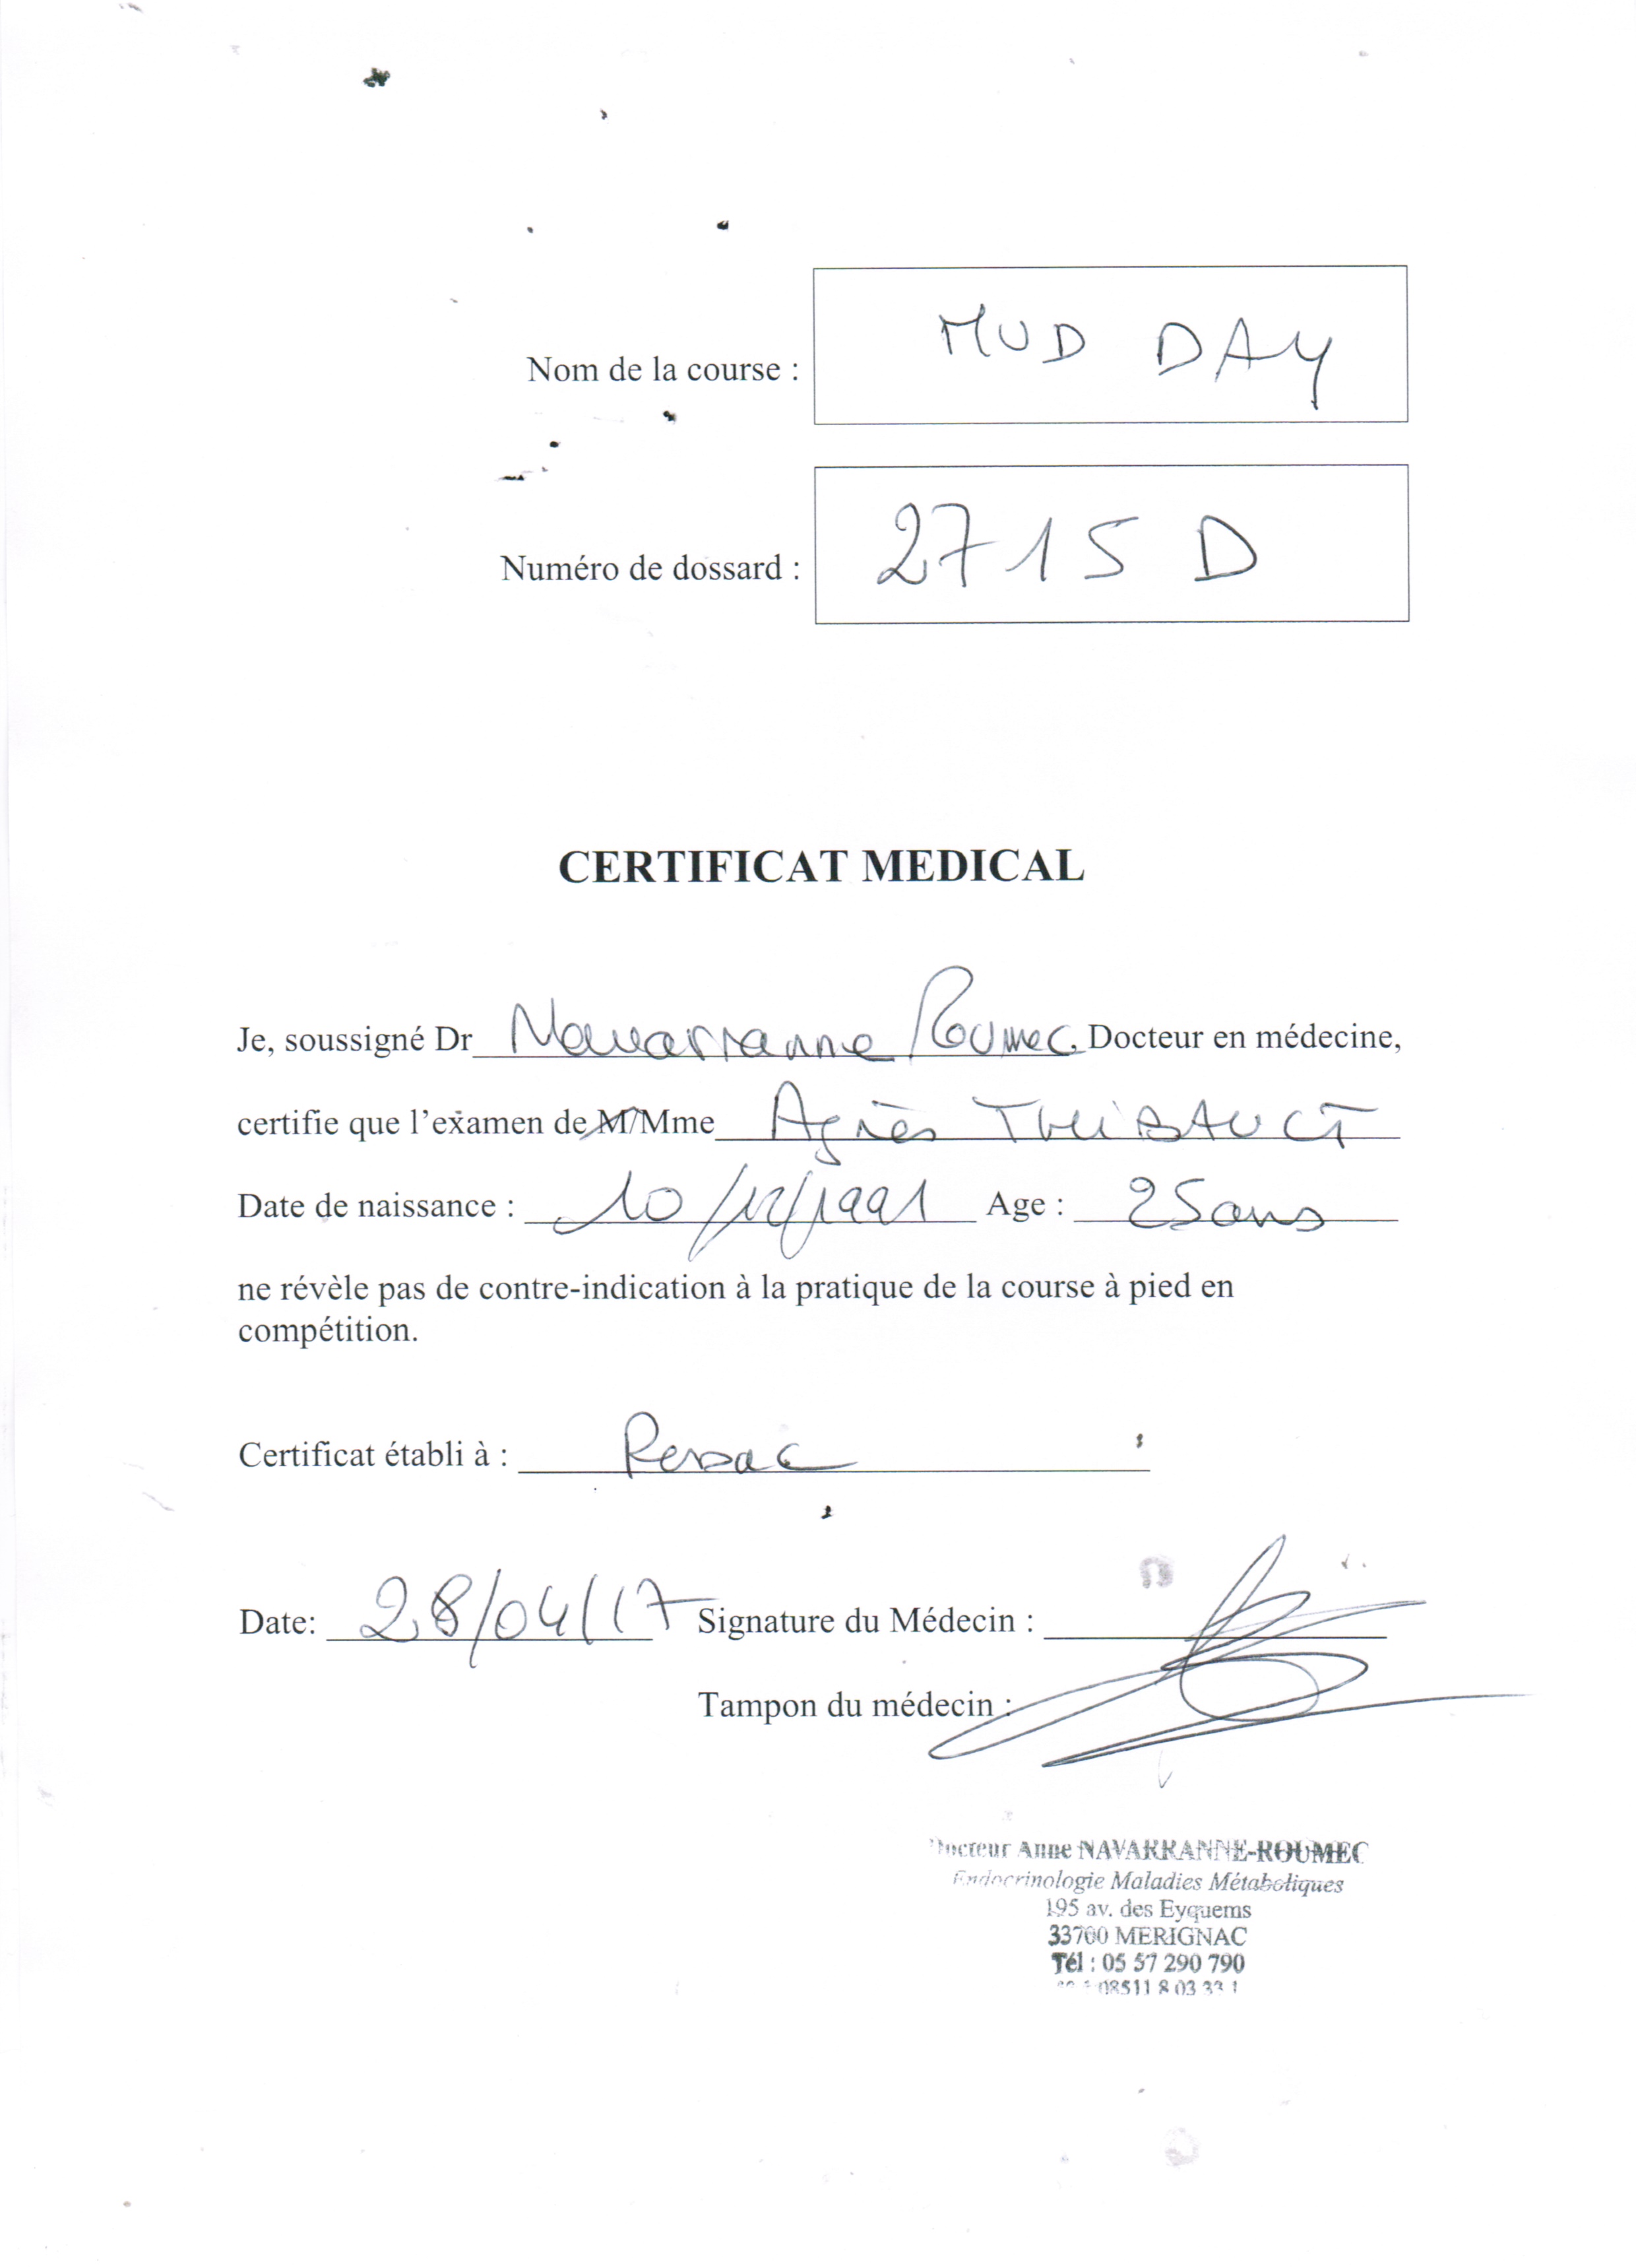 Nom de la course : MUD DAY
Numéro de dossard : 2715 D
CERTIFICAT MEDICAL
Je, soussigné Dr Navarranne Roumec, Docteur en médecine,
certifie que l'examen de M/Mme Agnès THIBAULT
Date de naissance : 10/12/1991 Age : 25 ans
ne révèle pas de contre-indication à la pratique de la course à pied en
compétition.
Certificat établi à : Pessac
Date: 28/04/17 Signature du Médecin :
Tampon du médecin :
Docteur Anne NAVARRANNE-ROUMEC
Endocrinologie Maladies Métaboliques
195 av. des Eyquems
33700 MERIGNAC
Tél : 05 57 290 790